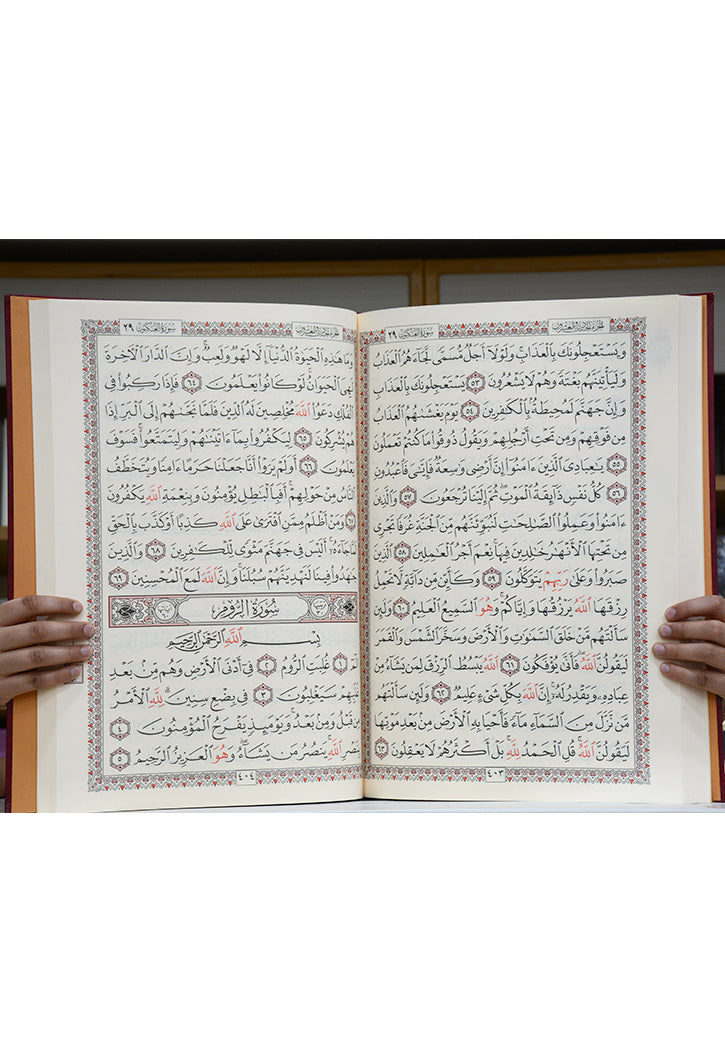 الجزء الحادي والعشرون سورة العنكبوت ٢٩
وَيَسْتَعْجِلُونَكَ بِٱلْعَذَابِ وَلَوْلَآ أَجَلٌ مُّسَمًّى لَّجَآءَهُمُ ٱلْعَذَابُ
وَلَيَأْتِيَنَّهُم بَغْتَةً وَهُمْ لَا يَشْعُرُونَ ٥٣ يَسْتَعْجِلُونَكَ بِٱلْعَذَابِ
وَإِنَّ جَهَنَّمَ لَمُحِيطَةٌۢ بِٱلْكَٰفِرِينَ ٥٤ يَوْمَ يَغْشَىٰهُمُ ٱلْعَذَابُ
مِن فَوْقِهِمْ وَمِن تَحْتِ أَرْجُلِهِمْ وَيَقُولُ ذُوقُوا۟ مَا كُنتُمْ تَعْمَلُونَ
٥٥ يَٰعِبَادِىَ ٱلَّذِينَ ءَامَنُوٓا۟ إِنَّ أَرْضِى وَٰسِعَةٌ فَإِيَّٰىَ فَٱعْبُدُونِ
٥٦ كُلُّ نَفْسٍ ذَآئِقَةُ ٱلْمَوْتِ ۖ ثُمَّ إِلَيْنَا تُرْجَعُونَ ٥٧ وَٱلَّذِينَ
ءَامَنُوا۟ وَعَمِلُوا۟ ٱلصَّٰلِحَٰتِ لَنُبَوِّئَنَّهُم مِّنَ ٱلْجَنَّةِ غُرَفًا تَجْرِى
مِن تَحْتِهَا ٱلْأَنْهَٰرُ خَٰلِدِينَ فِيهَا ۚ نِعْمَ أَجْرُ ٱلْعَٰمِلِينَ ٥٨ ٱلَّذِينَ
صَبَرُوا۟ وَعَلَىٰ رَبِّهِمْ يَتَوَكَّلُونَ ٥٩ وَكَأَيِّن مِّن دَآبَّةٍ لَّا تَحْمِلُ
رِزْقَهَا ٱللَّهُ يَرْزُقُهَا وَإِيَّاكُمْ ۚ وَهُوَ ٱلسَّمِيعُ ٱلْعَلِيمُ ٦٠ وَلَئِن
سَأَلْتَهُم مَّنْ خَلَقَ ٱلسَّمَٰوَٰتِ وَٱلْأَرْضَ وَسَخَّرَ ٱلشَّمْسَ وَٱلْقَمَرَ
لَيَقُولُنَّ ٱللَّهُ ۖ فَأَنَّىٰ يُؤْفَكُونَ ٦١ ٱللَّهُ يَبْسُطُ ٱلرِّزْقَ لِمَن يَشَآءُ مِنْ
عِبَادِهِۦ وَيَقْدِرُ لَهُۥٓ ۚ إِنَّ ٱللَّهَ بِكُلِّ شَىْءٍ عَلِيمٌ ٦٢ وَلَئِن سَأَلْتَهُم
مَّن نَّزَّلَ مِنَ ٱلسَّمَآءِ مَآءً فَأَحْيَا بِهِ ٱلْأَرْضَ مِنۢ بَعْدِ مَوْتِهَا
لَيَقُولُنَّ ٱللَّهُ ۚ قُلِ ٱلْحَمْدُ لِلَّهِ ۚ بَلْ أَكْثَرُهُمْ لَا يَعْقِلُونَ ٦٣
٤٠٣
الجزء الحادي والعشرون سورة العنكبوت ٢٩
وَمَا هَٰذِهِ ٱلْحَيَوٰةُ ٱلدُّنْيَآ إِلَّا لَهْوٌ وَلَعِبٌ ۚ وَإِنَّ ٱلدَّارَ ٱلْءَاخِرَةَ
لَهِىَ ٱلْحَيَوَانُ ۚ لَوْ كَانُوا۟ يَعْلَمُونَ ٦٤ فَإِذَا رَكِبُوا۟ فِى
ٱلْفُلْكِ دَعَوُا۟ ٱللَّهَ مُخْلِصِينَ لَهُ ٱلدِّينَ فَلَمَّا نَجَّىٰهُمْ إِلَى ٱلْبَرِّ إِذَا
هُمْ يُشْرِكُونَ ٦٥ لِيَكْفُرُوا۟ بِمَآ ءَاتَيْنَٰهُمْ وَلِيَتَمَتَّعُوا۟ ۖ فَسَوْفَ
يَعْلَمُونَ ٦٦ أَوَلَمْ يَرَوْا۟ أَنَّا جَعَلْنَا حَرَمًا ءَامِنًا وَيُتَخَطَّفُ
ٱلنَّاسُ مِنْ حَوْلِهِمْ ۚ أَفَبِٱلْبَٰطِلِ يُؤْمِنُونَ وَبِنِعْمَةِ ٱللَّهِ يَكْفُرُونَ
٦٧ وَمَنْ أَظْلَمُ مِمَّنِ ٱفْتَرَىٰ عَلَى ٱللَّهِ كَذِبًا أَوْ كَذَّبَ بِٱلْحَقِّ
لَمَّا جَآءَهُۥٓ ۚ أَلَيْسَ فِى جَهَنَّمَ مَثْوًى لِّلْكَٰفِرِينَ ٦٨ وَٱلَّذِينَ
جَٰهَدُوا۟ فِينَا لَنَهْدِيَنَّهُمْ سُبُلَنَا ۚ وَإِنَّ ٱللَّهَ لَمَعَ ٱلْمُحْسِنِينَ ٦٩
سُورَةُ الرُّومِ
بِسْمِ ٱللَّهِ ٱلرَّحْمَٰنِ ٱلرَّحِيمِ
١ غُلِبَتِ ٱلرُّومُ ٢ فِىٓ أَدْنَى ٱلْأَرْضِ وَهُم مِّنۢ بَعْدِ
غَلَبِهِمْ سَيَغْلِبُونَ ٣ فِى بِضْعِ سِنِينَ ۗ لِلَّهِ ٱلْأَمْرُ
مِن قَبْلُ وَمِنۢ بَعْدُ ۚ وَيَوْمَئِذٍ يَفْرَحُ ٱلْمُؤْمِنُونَ ٤
بِنَصْرِ ٱللَّهِ ۚ يَنصُرُ مَن يَشَآءُ ۖ وَهُوَ ٱلْعَزِيزُ ٱلرَّحِيمُ ٥
٤٠٤